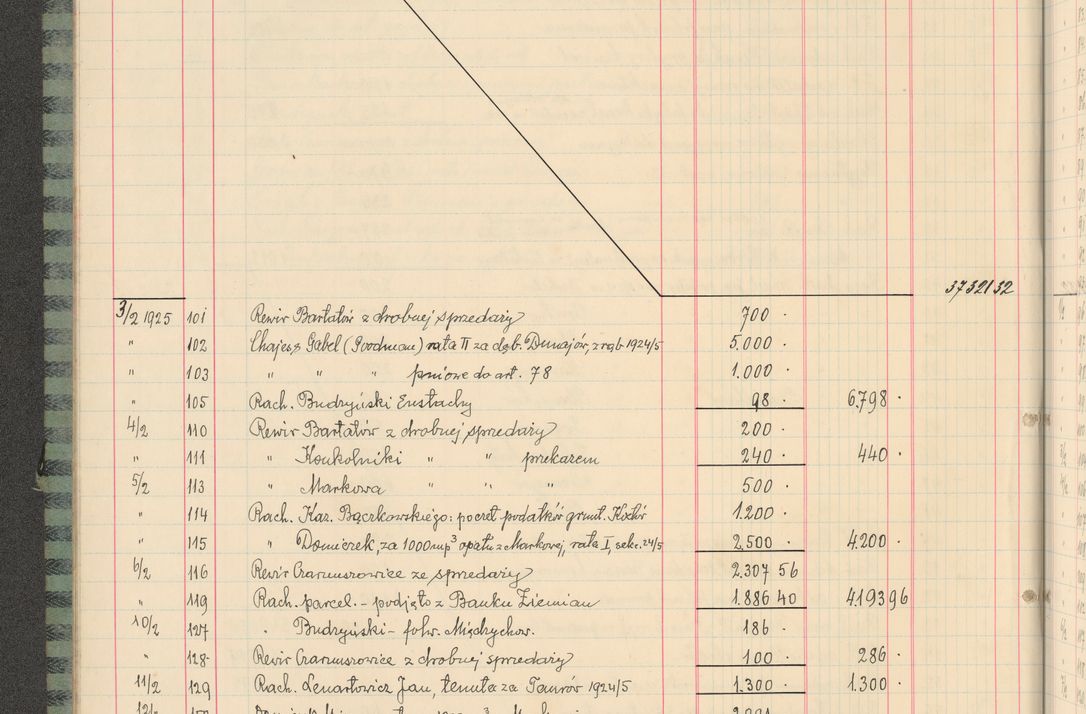 3732132
3/2 1925 101 Rewir Bartatów z drobnej sprzedaży 700 ·
" 102 Chajes, Gabel (Goodman) rata II za dęb. Dunajów, z rąb. 1924/5 5.000 ·
" 103 " " " pniowe do art. 78 1.000 ·
" 105 Rach. Budryński Eustachy 98 · 6.798 ·
4/2 110 Rewir Bartatów z drobnej sprzedaży 200 ·
" 111 " Konkolniki " " przekazem 240 · 440 ·
5/2 113 " Markowa " " " 500 ·
" 114 Rach. Kaz. Bączkowskiego: poczet podatków grunt. 1.200 ·
" 115 " za 1000 mp³ opału z Markowej, rata I, sekc. 24/5 2.500 · 4.200 ·
6/2 116 Rewir ze sprzedaży 2.307 56
" 119 Rach. parcel. - podjęto z Banku Ziemian 1.886 40 4.193 96
10/2 127 · Budryński - folw. Międzychor. 186 ·
" 128 Rewir z drobnej sprzedaży 100 · 286 ·
11/2 129 Rach. Lenartowicz Jan, tenuta za Taurów 1924/5 1.300 · 1.300 ·